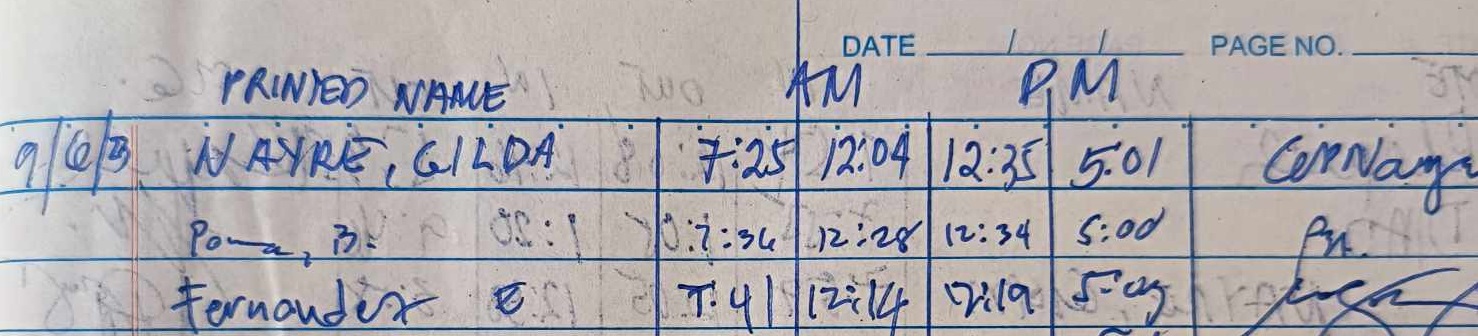 DATE / / PAGE NO.
PRINTED NAME AM PM
9/6/23 NAYRE, GILDA 7:25 12:04 12:35 5:01
B. 7:36 12:28 12:34 5:00
Fernandez E 7:41 12:14 12:19 5:09